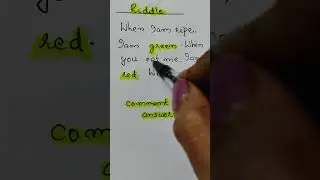 Riddle
When I am ripe,
I am green When
you eat me I am
red W
comment
answer